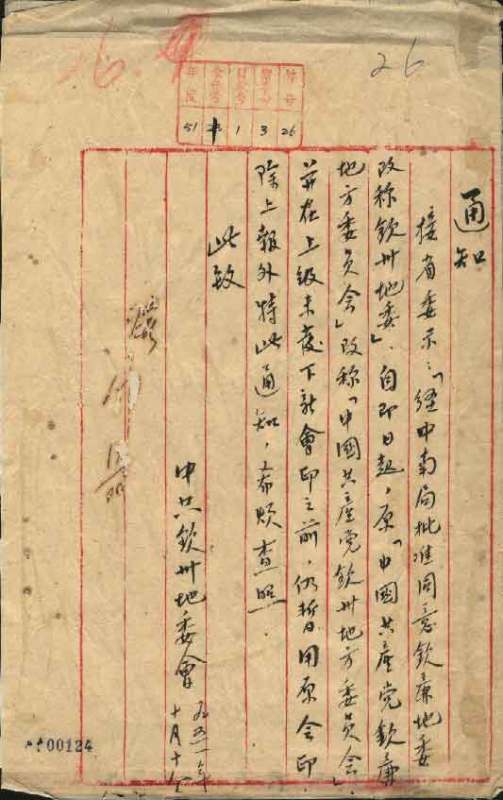 26
年度
51
1
3
26
通知
接省委示:「經中南局批准同意欽廉地委
改称欽州地委」.自即日起,原「中國共産党欽廉
地方委員会」改称「中國共産党欽州地方委員会」.
并在上級未發下新會印之前,仍暫用原会印.
除上報外特此通知,希煩查照.
此致
中共欽州地委會
一九五一年
十月十
00124